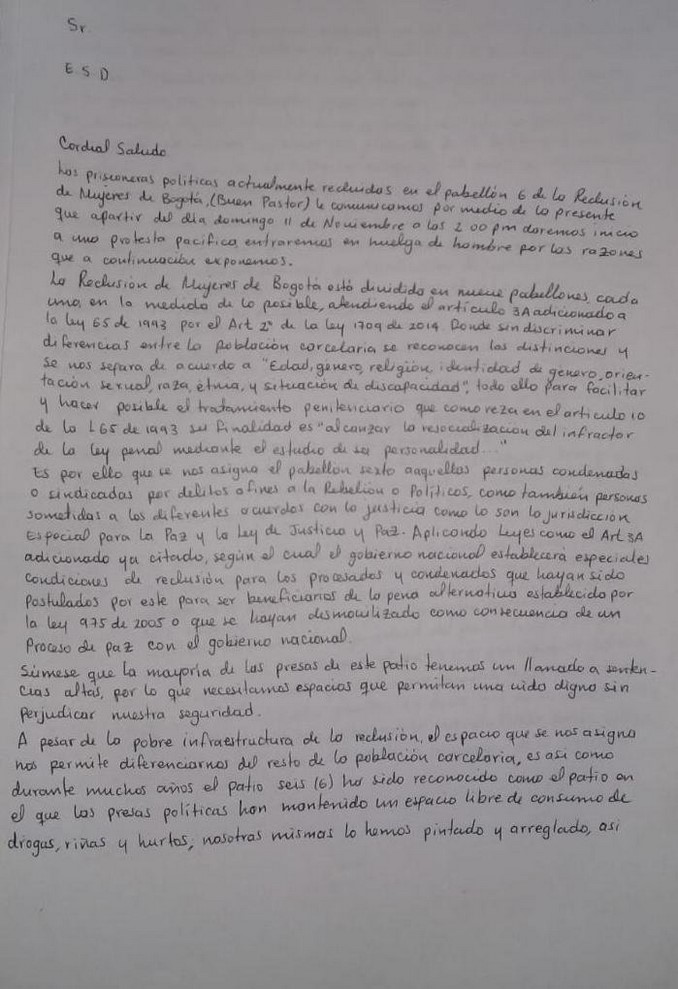 Sr.
E.S.D
Cordial Saludo
Las prisioneras políticas actualmente recluidas en el pabellón 6 de la Reclusión
de Mujeres de Bogotá, (Buen Pastor) le comunicamos por medio de la presente
que apartir del día domingo 11 de Noviembre a las 2:00 pm daremos inicio
a una protesta pacífica, entraremos en huelga de hambre por las razones
que a continuación exponemos.
La Reclusión de Mujeres de Bogotá está dividida en nueve pabellones, cada
uno, en la medida de lo posible, atendiendo el artículo 3A adicionado a
la ley 65 de 1993 por el Art 2° de la ley 1709 de 2014. Donde sin discriminar
diferencias entre la población carcelaria se reconocen las distinciones y
se nos separa de acuerdo a "Edad, género, religión, identidad de género, orien-
tación sexual, raza, étnia, y situación de discapacidad", todo ello para facilitar
y hacer posible el tratamiento penitenciario que como reza en el artículo 10
de la L65 de 1993 su finalidad es "alcanzar la resocialización del infractor
de la ley penal mediante el estudio de su personalidad..."
Es por ello que se nos asigna el pabellón sexto aaquellas personas condenadas
o sindicadas por delitos afines a la Rebelión o Políticos, como también personas
sometidas a los diferentes acuerdos con la justicia como lo son la jurisdicción
Especial para la Paz y la Ley de Justicia y Paz. Aplicando Leyes como el Art 3A
adicionado ya citado, según el cual el gobierno nacional establecerá especiales
condiciones de reclusión para los procesados y condenados que hayan sido
Postulados por este para ser beneficiarios de la pena alternativa establecida por
la ley 975 de 2005 o que se hayan desmovilizado como consecuencia de un
Proceso de paz con el gobierno nacional.
Súmese que la mayoría de las presas de este patio tenemos un llamado a senten-
cias altas, por lo que necesitamos espacios que permitan una vida digna sin
perjudicar nuestra seguridad.
A pesar de la pobre infraestructura de la reclusión, el espacio que se nos asigna
nos permite diferenciarnos del resto de la población carcelaria, es así como
durante muchos años el patio seis (6) ha sido reconocido como el patio en
el que las presas políticas han mantenido un espacio libre de consumo de
drogas, riñas y hurtos; nosotras mismas lo hemos pintado y arreglado, así